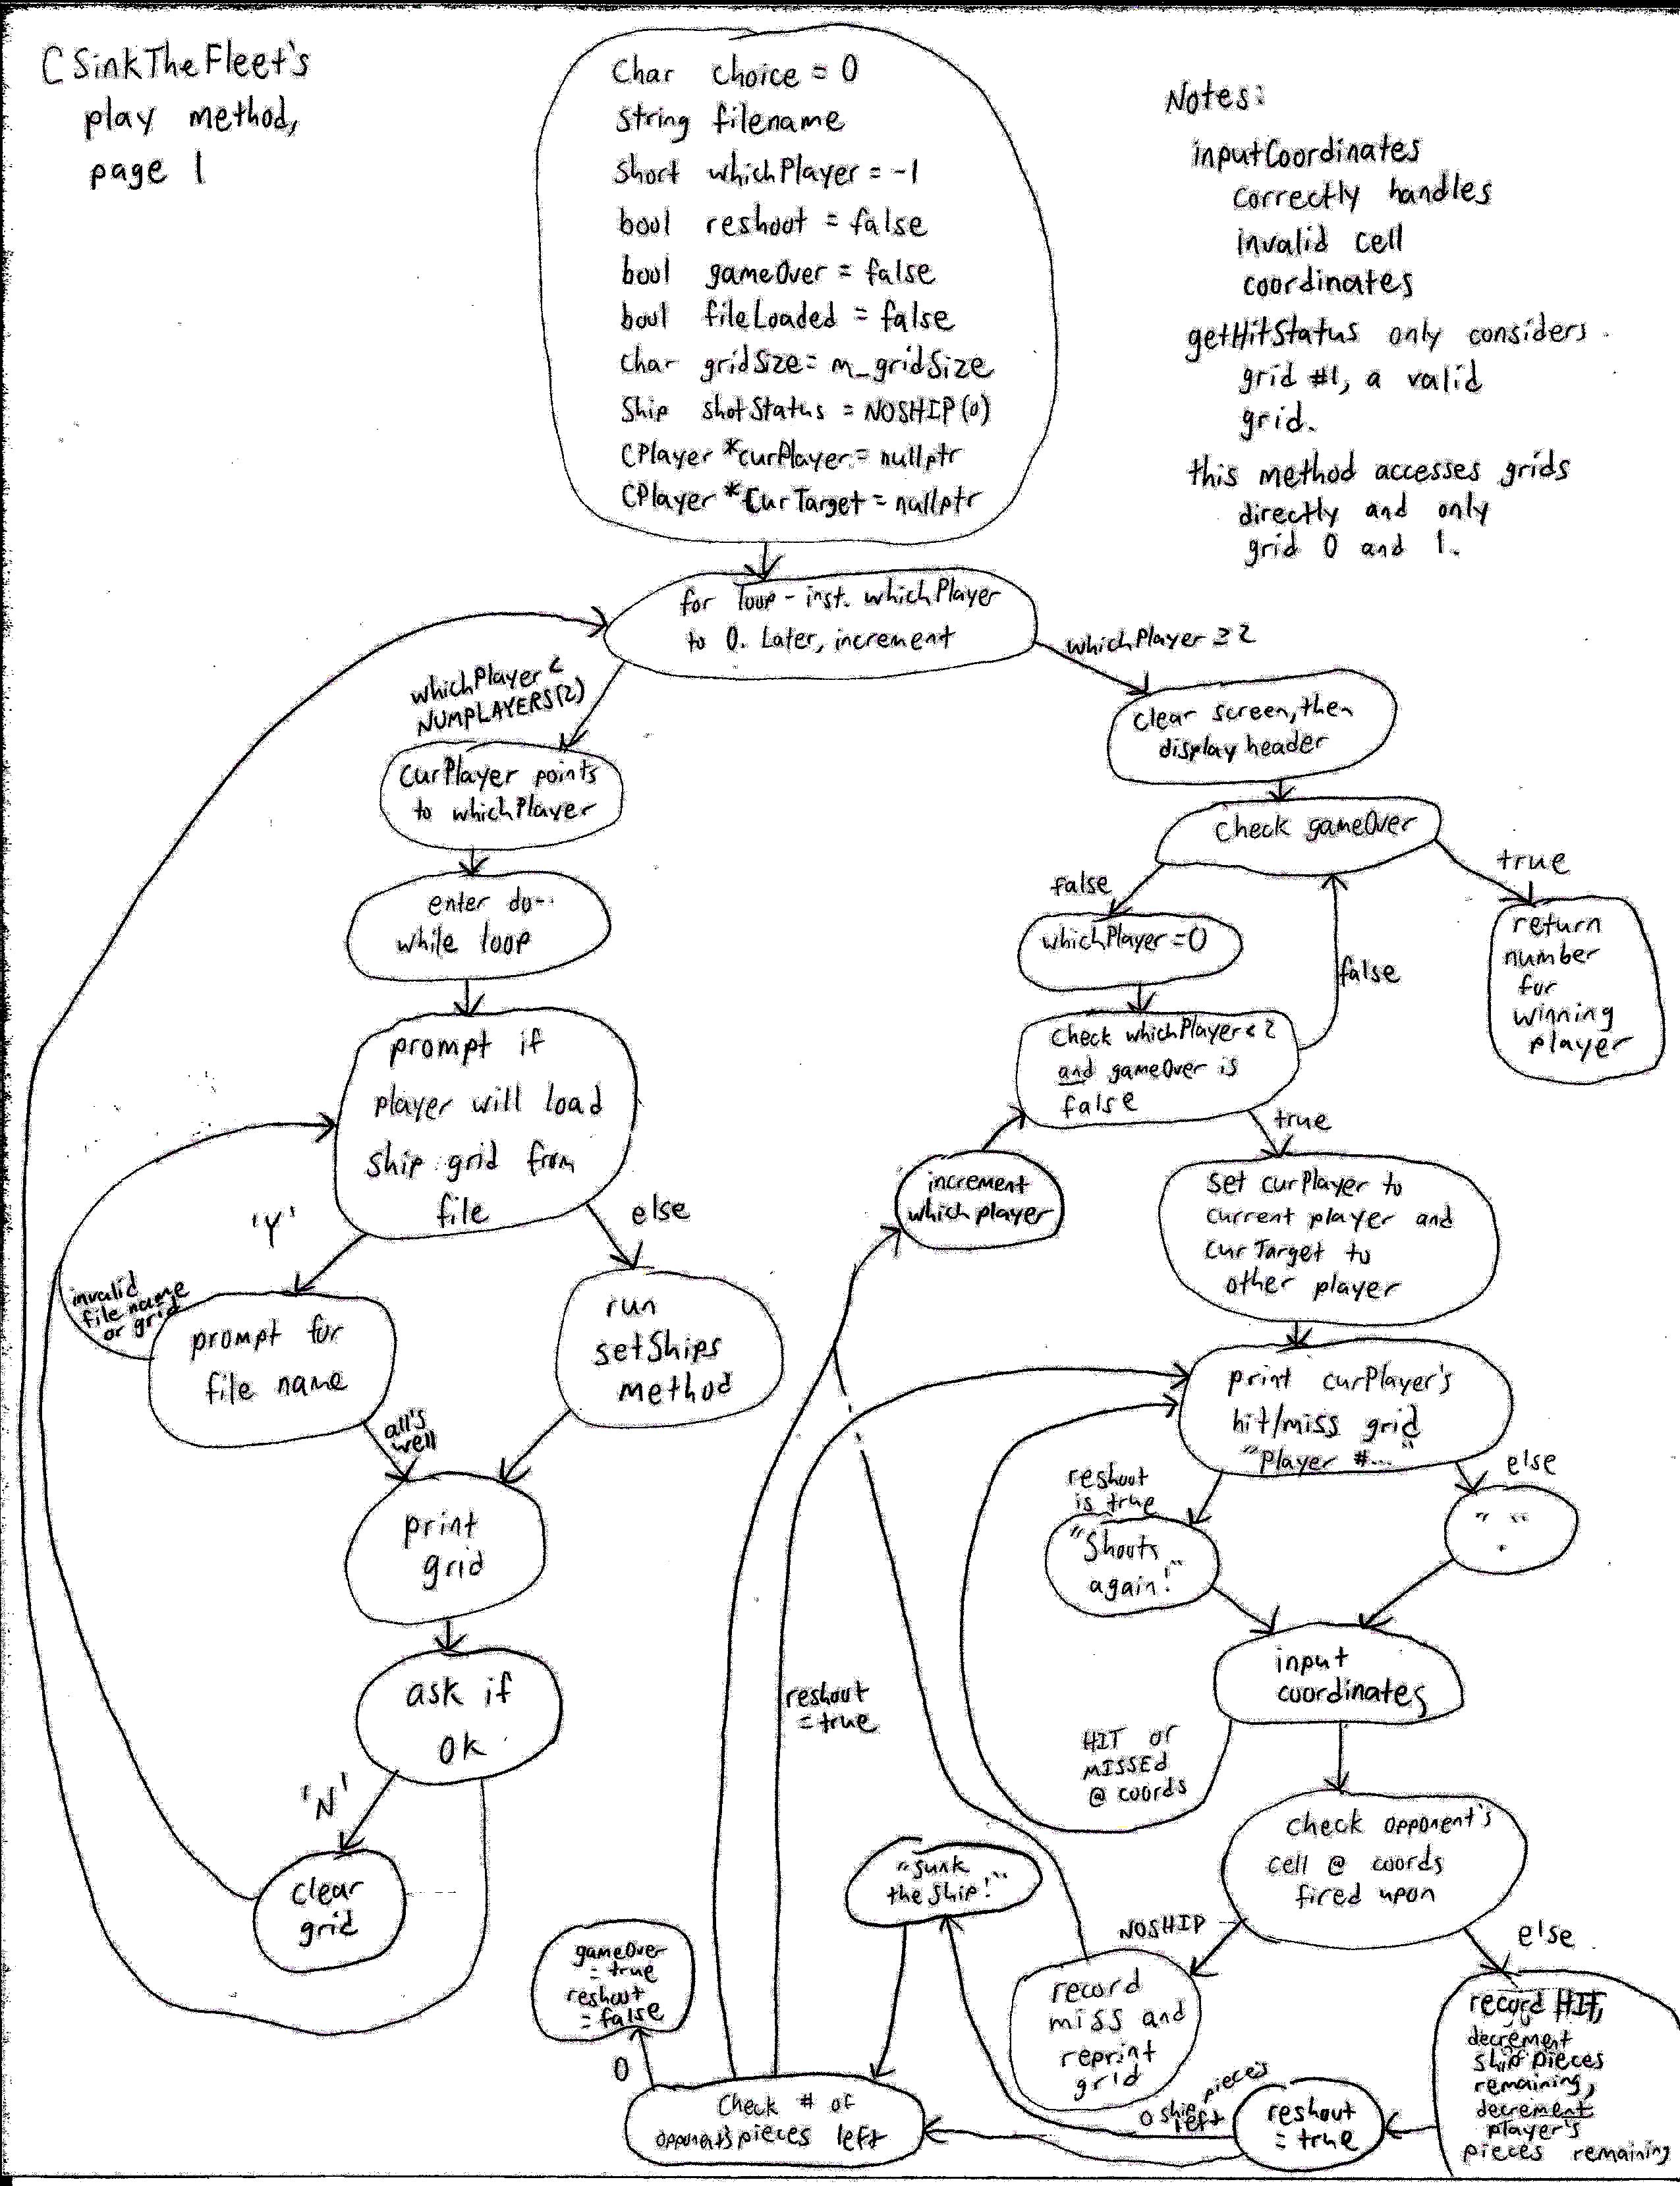 CSinkTheFleet's
play method,
page 1
Char choice = 0
string filename
Short whichPlayer = -1
bool reshoot = false
bool gameOver = false
bool fileLoaded = false
Char gridSize = m_gridSize
Ship shotStatus = NOSHIP(0)
CPlayer *curPlayer = nullptr
CPlayer *CurTarget = nullptr
Notes:
inputCoordinates
correctly handles
invalid cell
coordinates
getHitStatus only considers
grid #1, a valid
grid.
this method accesses grids
directly and only
grid 0 and 1.
for loop - inst. whichPlayer
to 0. Later, increment
whichPlayer <
NUMPLAYERS(2)
whichPlayer ≥ 2
curPlayer points
to whichPlayer
enter do-
while loop
prompt if
player will load
ship grid from
file
'Y'
else
invalid
file name
or grid
prompt for
file name
run
setShips
method
all's
well
print
grid
ask if
OK
'N'
clear
grid
clear screen, then
display header
check gameOver
false
true
return
number
for
winning
player
whichPlayer = 0
false
Check whichPlayer < 2
and gameOver is
false
true
increment
which player
set curPlayer to
current player and
curTarget to
other player
print curPlayer's
hit/miss grid
"Player #..."
reshoot
is true
else
"Shoots
again!"
" "
.
input
coordinates
HIT or
MISSED
@ coords
reshoot
= true
check opponent's
cell @ coords
fired upon
NOSHIP
else
record
miss and
reprint
grid
record HIT,
decrement
ship pieces
remaining,
decrement
player's
pieces remaining
reshoot
= true
0 ship pieces
left
"sunk
the ship!"
Check # of
opponent's pieces left
0
gameOver
= true
reshoot
= false